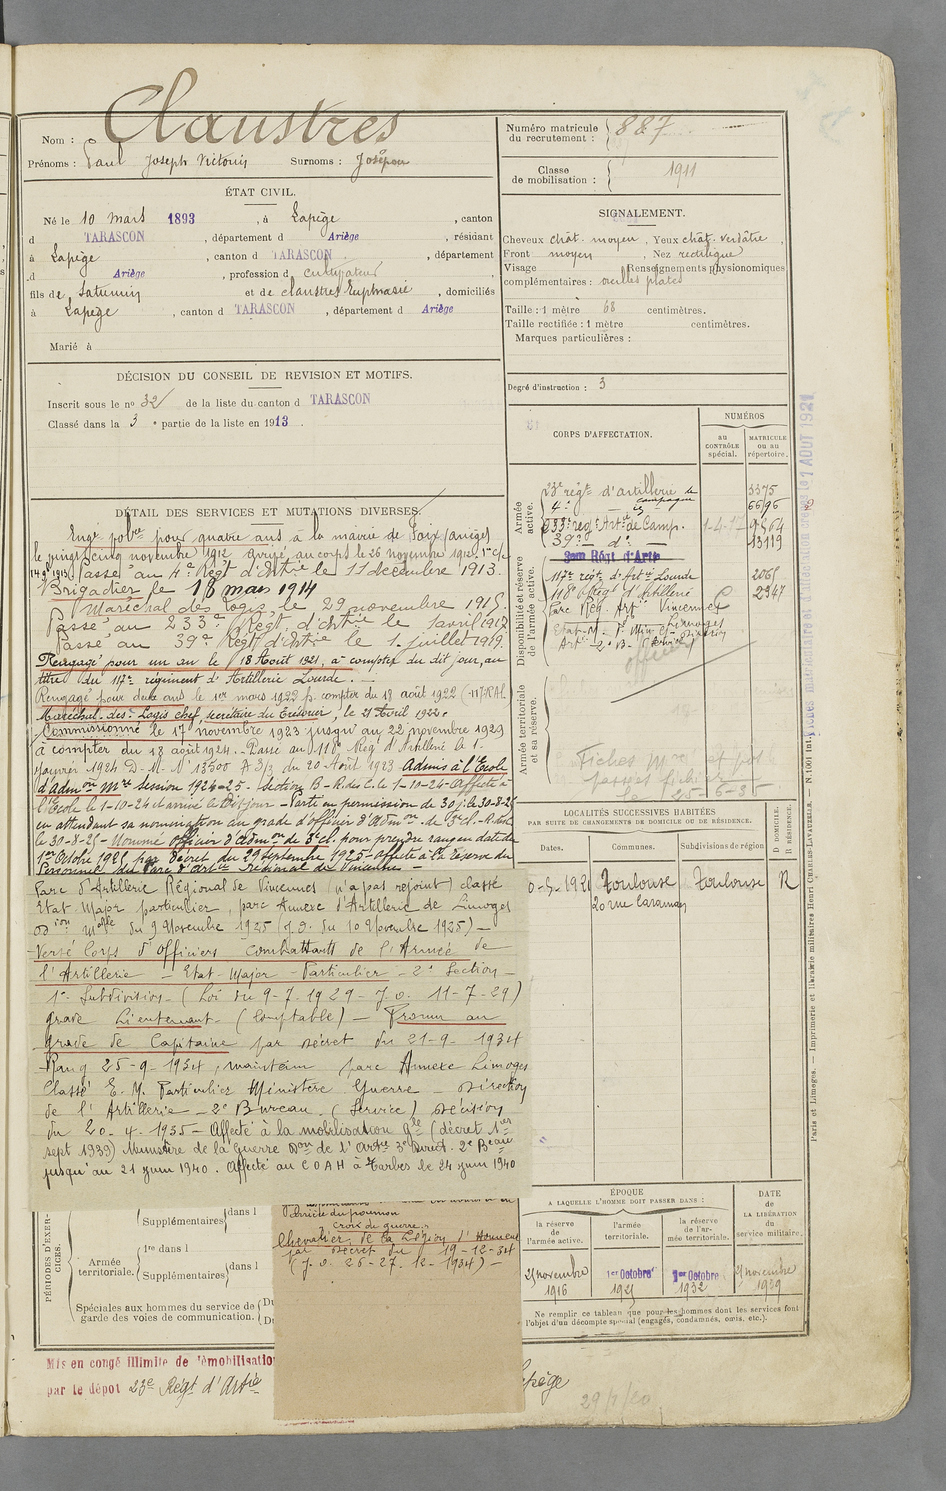 Nom : Claustres
Prénoms : Paul Joseph Victorin Surnoms : Joseph
Numéro matricule du recrutement : 887
Classe de mobilisation : 1911
ÉTAT CIVIL.
Né le 10 mars 1893, à Lapège, canton
d TARASCON, département d Ariège, résidant
à Lapège, canton d TARASCON, département
d Ariège, profession d cultivateur
fils de Saturnin et de claustres Euphrasie, domiciliés
à Lapège, canton d TARASCON, département d Ariège
Marié à
SIGNALEMENT.
Cheveux chât. moyen, Yeux chât. verdâtre,
Front moyen, Nez rectiligne
Visage Renseignements physionomiques
complémentaires : oreilles plates
Taille : 1 mètre 68 centimètres.
Taille rectifiée : 1 mètre centimètres.
Marques particulières :
Degré d'instruction : 3
DÉCISION DU CONSEIL DE REVISION ET MOTIFS.
Inscrit sous le nº 32 de la liste du canton d TARASCON
Classé dans la 3e partie de la liste en 1913.
DÉTAIL DES SERVICES ET MUTATIONS DIVERSES.
Engé pour quatre ans à la mairie de Foix (ariège)
le vingt cinq novembre 1912 arrivé au corps le 26 novembre 1912. 1re c/e
Passé au 4e Régt d'Artie le 11 décembre 1913.
Brigadier le 18 mars 1914
Maréchal des Logis le 29 novembre 1915.
Passé au 233e Régt d'Artie le 1 avril 1917
Passé au 39e Régt d'Artie le 1. juillet 1919.
Rengagé pour un an le 18 Août 1921, à compter du dit jour, au
titre du 117e régiment d'Artillerie Lourde.
Rengagé pour deux ans le 1er mars 1922 p. compter du 18 août 1922 (117 RAL)
Maréchal-des-Logis chef, secrétaire du Trésorier, le 21 Avril 1922.
Commissionné le 17 novembre 1923 jusqu'au 22 novembre 1929
à compter du 18 août 1924. Passé au 118e Régt d'Artillerie le 1
Janvier 1924 D. M. Nº 13500 A 3/3 du 20 Août 1923 Admis à l'Ecole
d'Admon Mre session 1924-25 - Section B - R. des C. le 1-10-24 - Affecté à
l'Ecole le 1-10-24 et arrivé le dit jour - Parti en permission de 30 j. le 30-8-25
en attendant sa nomination au grade d'officier d'Admon de 3e cl.
le 30-8-25 - Nommé officier d'Admon de 3e cl. pour prendre rang en date du
1er Octobre 1925 par décret du 29 septembre 1925 - affecté à la réserve du
Personnel du Parc d'Artie régional de Vincennes -
Parc d'Artillerie Régional de Vincennes (n'a pas rejoint) classé
Etat Major particulier, parc Annexe d'Artillerie de Limoges
du 9 Novembre 1925 (J.O. du 10 Novembre 1925) -
Versé Corps d'Officiers Combattants de l'Armée de
l'Artillerie - Etat-Major - Particulier - 2e Section -
1re Subdivision - (Loi du 9-7-1929 - J.O. 11-7-29)
grade Lieutenant - (Comptable) - Promu au
grade de Capitaine par décret du 21-9-1934
Rang 25-9-1934, maintenu parc Annexe Limoges
Classé E. M. Particulier Ministère Guerre - Direction
de l'Artillerie - 2e Bureau. (Service) Décision
du 20-4-1935 - Affecté à la mobilisation gle (décret 1er
sept 1939) Ministère de la Guerre Don de l'Artie 2e Beau
jusqu'au 21 juin 1940. Affecté au COAH à Tarbes le 24 juin 1940
CORPS D'AFFECTATION.
NUMÉROS
au CONTRÔLE spécial.
MATRICULE ou au répertoire.
Armée active.
23e régt d'artillerie de campagne 3375
4e 6696
233e rég. Artie de Camp. 9464
39e do 13119
Disponibilité et réserve de l'armée active.
117e régt d'Artie Lourde 2065
118e Régt d'Artillerie 2947
Parc Rég. Artie Vincennes
officier
Armée territoriale et sa réserve.
LOCALITÉS SUCCESSIVES HABITÉES
PAR SUITE DE CHANGEMENTS DE DOMICILE OU DE RÉSIDENCE.
Dates. Communes. Subdivisions de région D. DOMICILE. R. RÉSIDENCE.
1921 Toulouse Toulouse R
20 rue Caraman
ÉPOQUE
A LAQUELLE L'HOMME DOIT PASSER DANS :
la réserve de l'armée active.
l'armée territoriale.
la réserve de l'armée territoriale.
DATE de LA LIBÉRATION du service militaire.
25 novembre 1916
1er Octobre 1925
1er Octobre 1932
25 novembre 1939
Ne remplir ce tableau que pour les hommes dont les services font
l'objet d'un décompte spécial (engagés, condamnés, omis, etc.).
PÉRIODES D'EXERCICES.
Supplémentaires dans l
Armée territoriale. 1re dans l
Supplémentaires dans l
Spéciales aux hommes du service de
garde des voies de communication.
du poumon
Croix de guerre.
Chevalier de la Légion d'Honneur
par décret du 19-12-34
(J.O. 26-27-12-1934) -
Mis en congé illimité de démobilisation
par le dépôt 23e Régt d'Artie
29/1/60
Paris et Limoges. — Imprimerie et librairie militaires Henri CHARLES-LAVAUZELLE. — N. 1001 int.